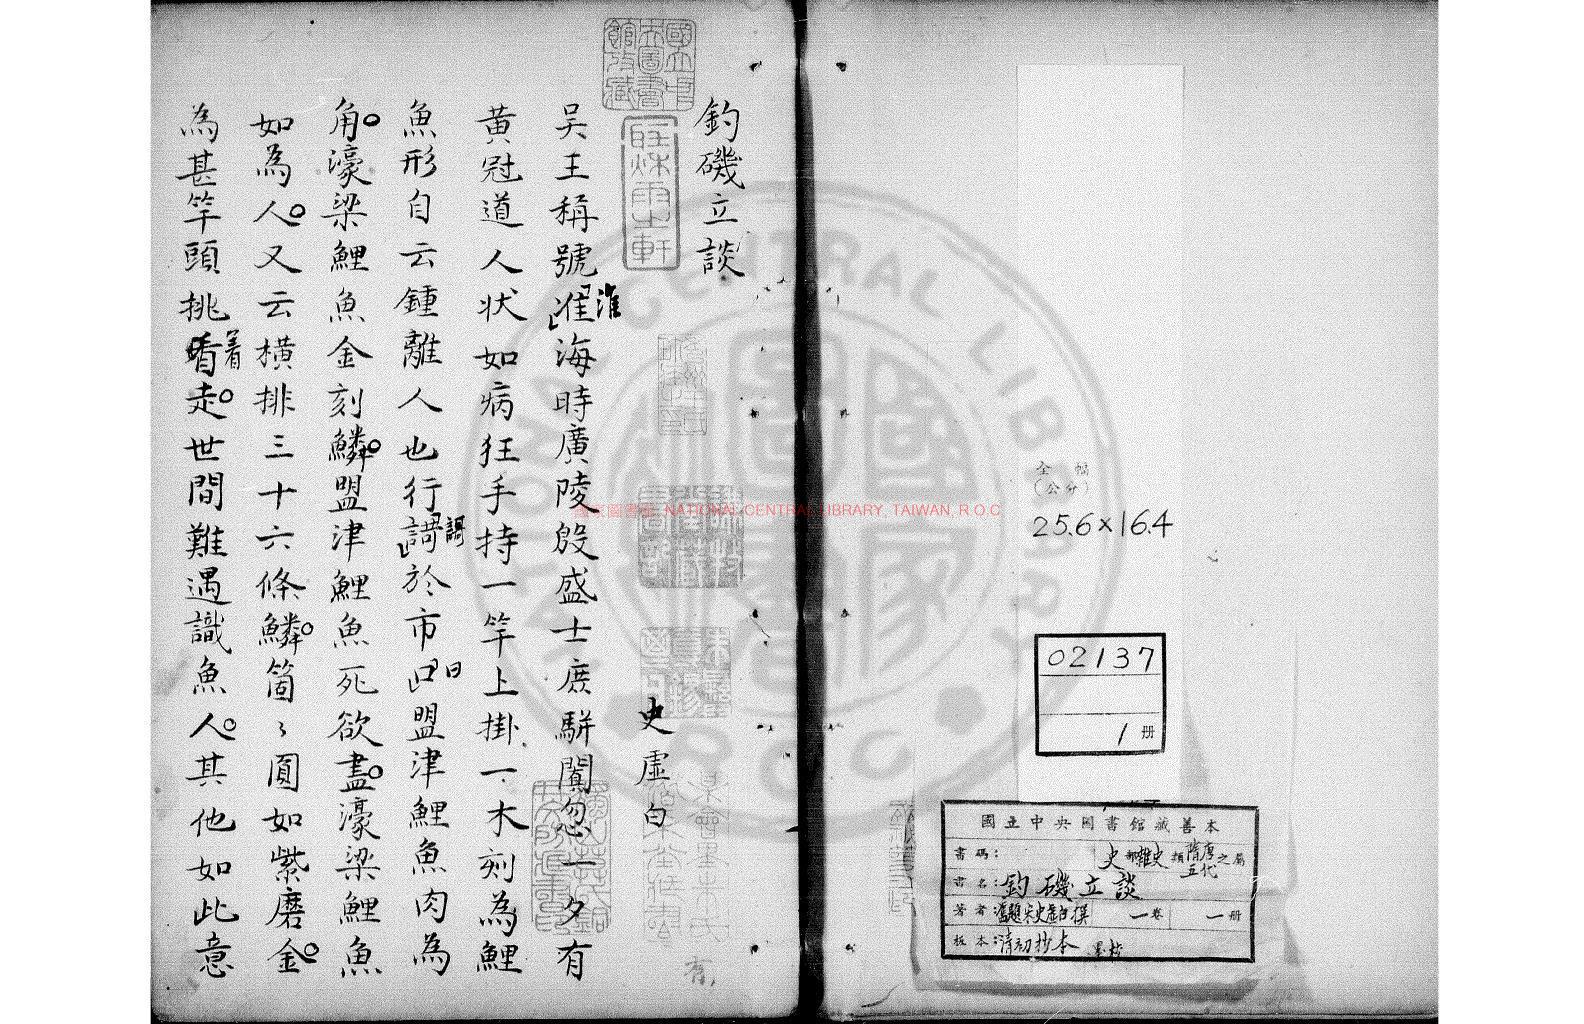 全　幅
（公分）
25.6×16.4
02137
1 册
國立中央圖書館藏善本
書碼：史部雜史類隋唐五代之屬
書名：釣磯立談
著者：舊題宋史虛白撰 一卷 一册
板本：清初抄本 墨校
釣磯立談
史虛白
國立中央圖書館收藏
吴王稱號准淮海時廣陵殷盛士庶駢闐忽一夕有
黄冠道人状如病狂手持一竿上掛一木刻為鯉
魚形自云鍾離人也行謌謌於市曰曰盟津鯉魚肉為
角濠梁鯉魚金刻鱗盟津鯉魚死欲盡濠梁鯉魚
如為人又云橫排三十六條鱗箇〻圓如紫磨金
為甚竿頭挑着着走世間難遇識魚人其他如此意
國家圖書館 NATIONAL CENTRAL LIBRARY, TAIWAN, R.O.C
NATIONAL CENTRAL LIBRARY
R.O.C